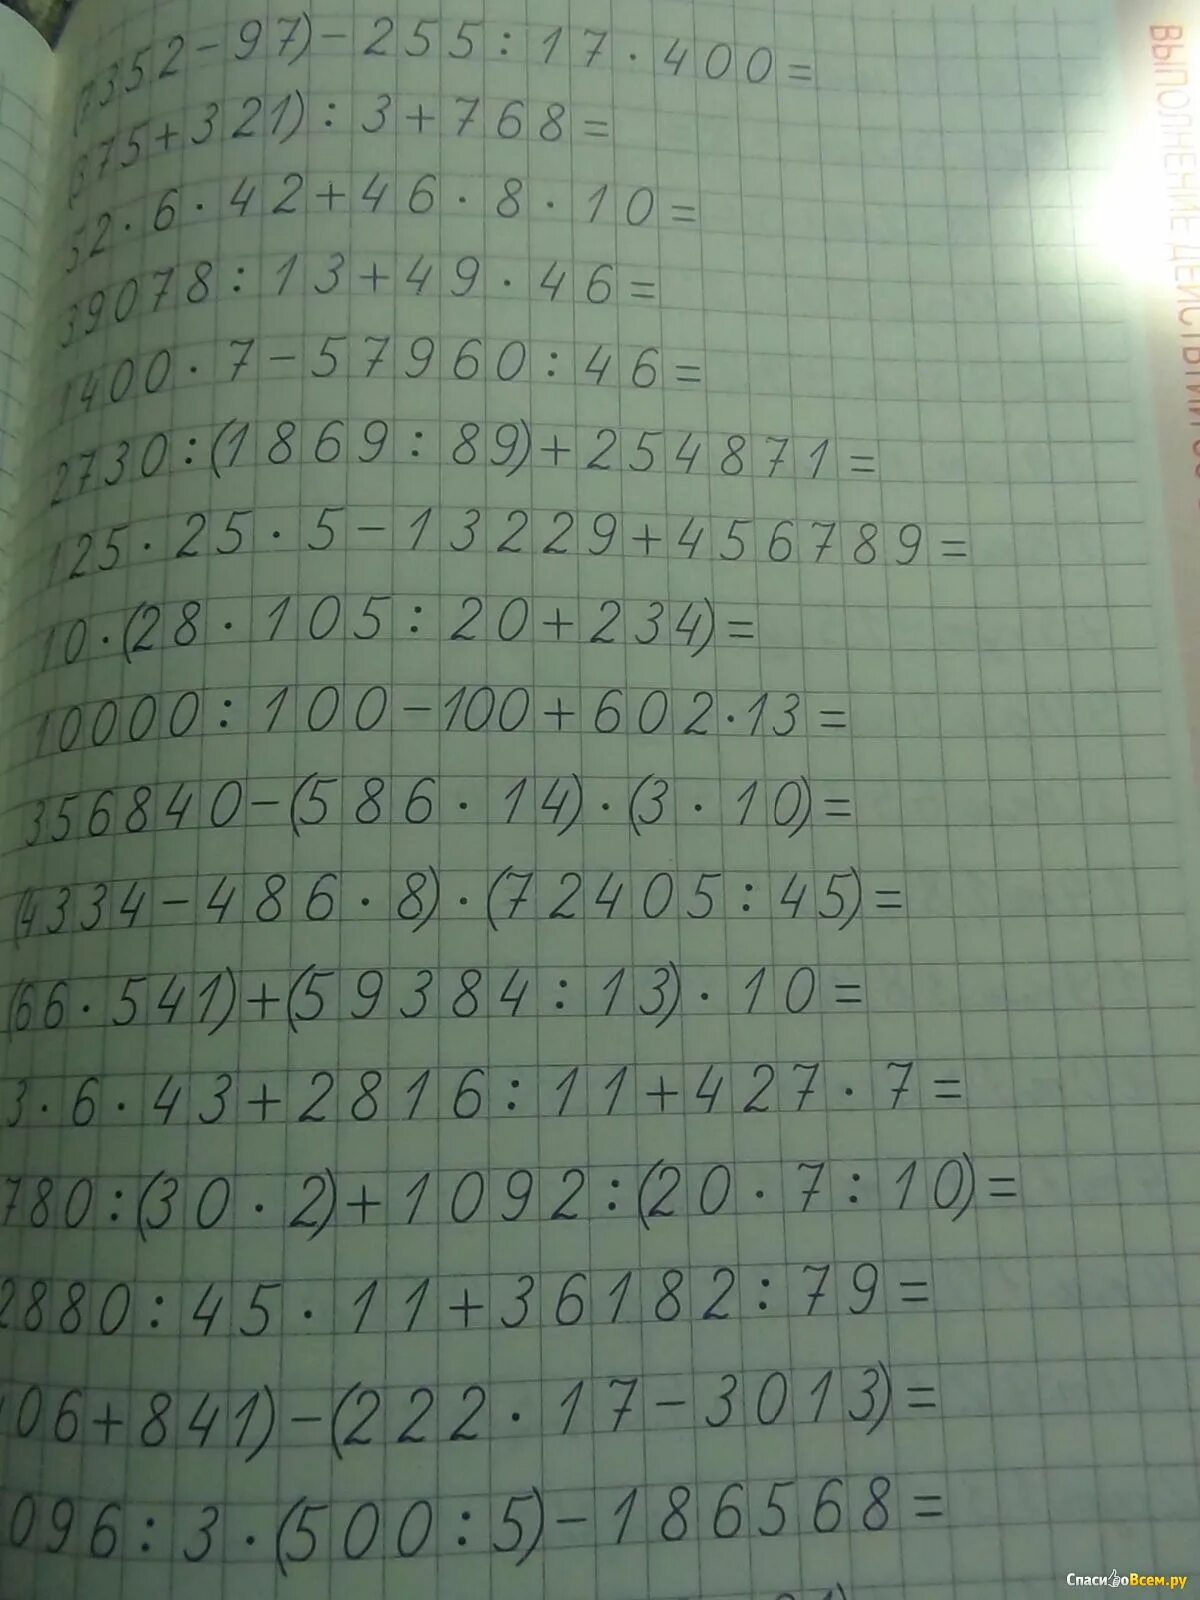 (7352-97)-255:17·400=
(375+321):3+768=
52·6·42+46·8·10=
39078:13+49·46=
1400·7-57960:46=
2730:(1869:89)+254871=
125·25·5-13229+456789=
10·(28·105:20+234)=
10000:100-100+602·13=
356840-(586·14)·(3·10)=
(4334-486·8)·(72405:45)=
(66·541)+(59384:13)·10=
3·6·43+2816:11+427·7=
780:(30·2)+1092:(20·7:10)=
2880:45·11+36182:79=
06+841)-(222·17-3013)=
096:3·(500:5)-186568=
ВЫПОЛНЕНИЕ ДЕЙСТВИЙ
СпасибоВсем.ру